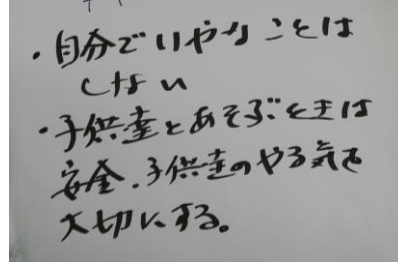 ・自分でいやなことは
しない
・子供達とあそぶときは
安全、子供達のやる気を
大切にする。